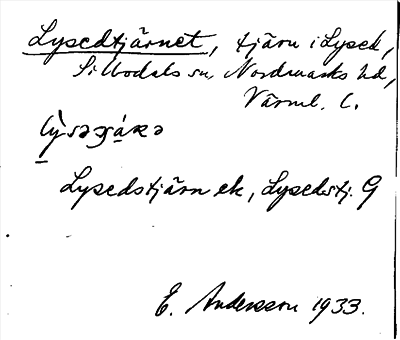 Lysedtjärnet, tjärn i Lysed,
Sillbodals sn, Nordmarks hd,
Värml. l.
Lysedstjärn ek, Lysedstj. G
E. Andersson 1933.